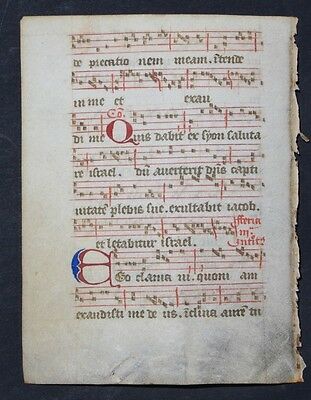 de precatio nem meam. Intende
in me et exau
di me Co. Quis dabit ex syon saluta
re israel. dũ averterit dñs capti
vitatẽ plebis sue. exultabit iacob.
et letabitur israel.
Ego clama vi. quoni am
exaudisti me deus. inclina aurẽ tu